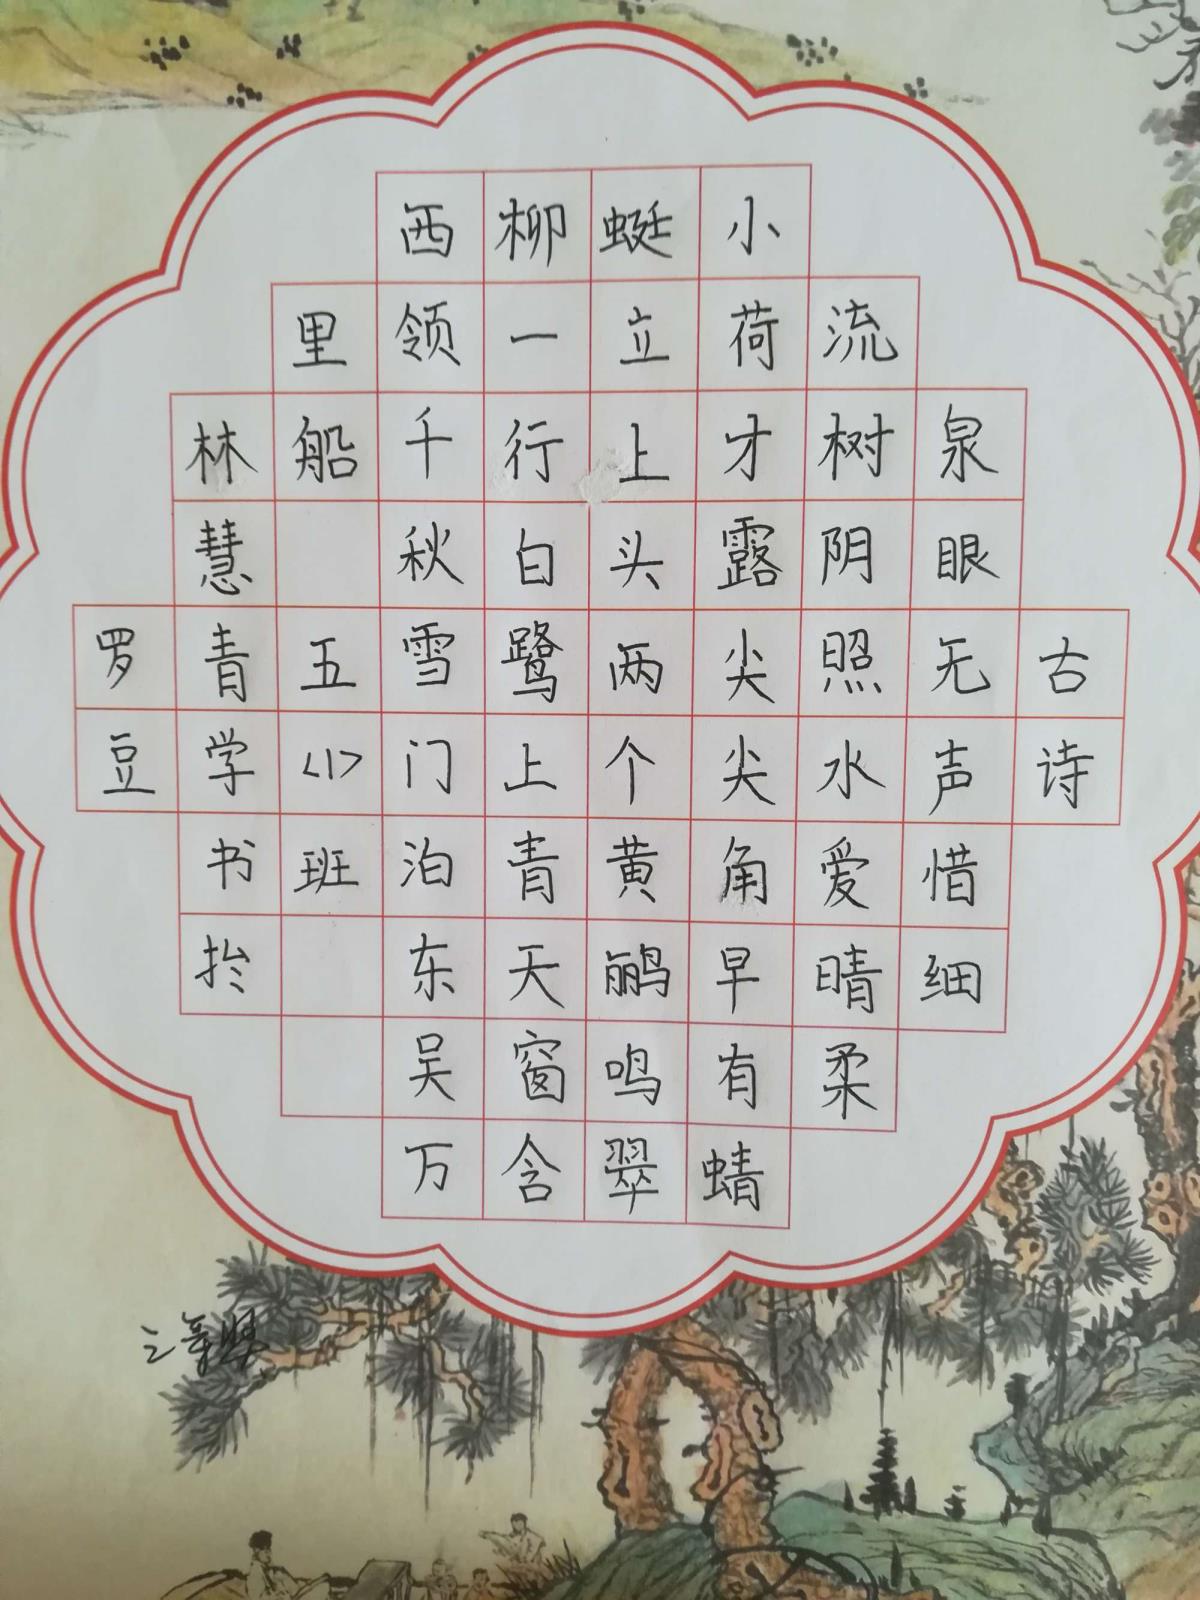 古诗
泉眼无声惜细
流树阴照水爱晴柔
小荷才露尖尖角早有蜻
蜓立上头两个黄鹂鸣翠
柳一行白鹭上青天窗含
西领千秋雪门泊东吴万
里船 五<1>班
林慧青学书扵
罗豆